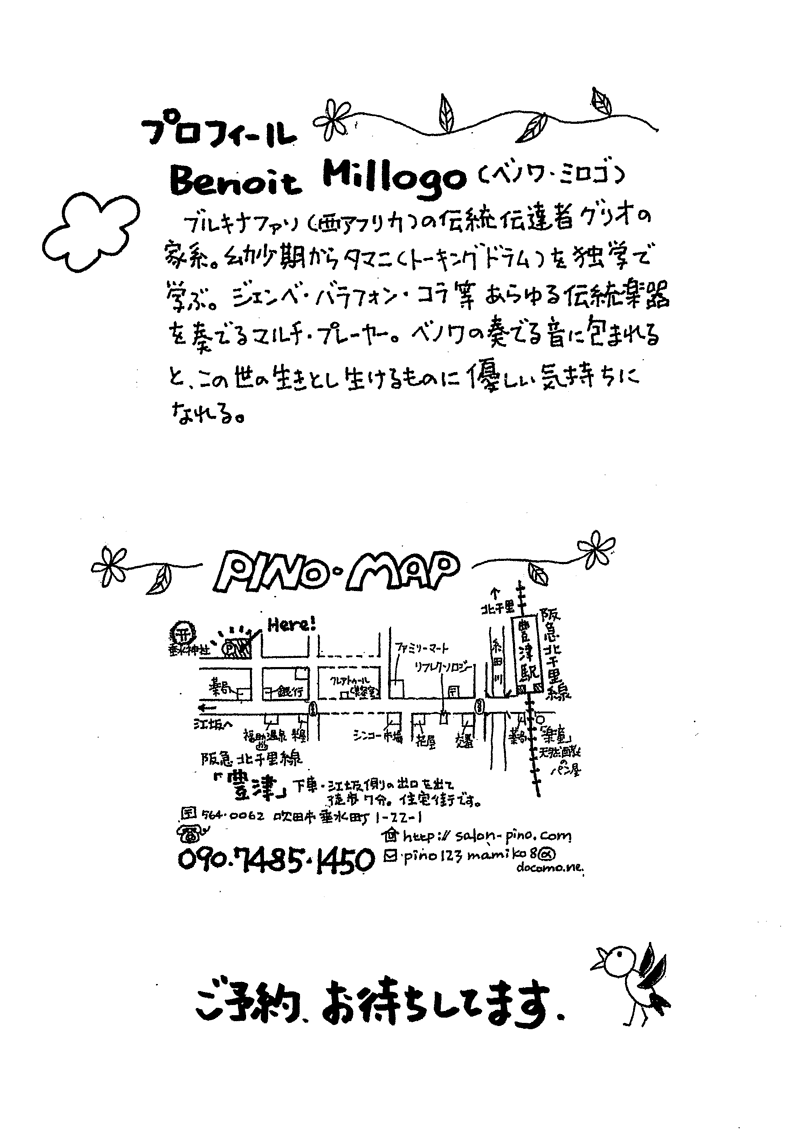 プロフィール
Benoit Millogo (ベノワ・ミロゴ)
ブルキナファソ(西アフリカ)の伝統伝達者グリオの
家系。幼少期からタマニ(トーキングドラム)を独学で
学ぶ。ジェンベ・バラフォン・コラ等 あらゆる伝統楽器
を奏でるマルチ・プレーヤー。ベノワの奏でる音に包まれる
と、この世の生きとし生けるものに優しい気持ちに
なれる。
PINO・MAP
↑
北千里
阪急北千里線
豊津駅
糸田川
Here!
垂水神社
ファミリーマート
リフレクソロジー
薬局
銀行
〒
江坂へ
福助温泉
シンコー市場
花屋
交番
薬局
「楽童」
天然酵母
のパン屋
阪急北千里線
「豊津」下車・江坂側の出口を出て
徒歩7分。住宅街です。
〒564-0062 吹田市垂水町1-22-1
090.7485.1450
http://salon-pino.com
pino123mamiko8@
docomo.ne.
ご予約、お待ちしてます.